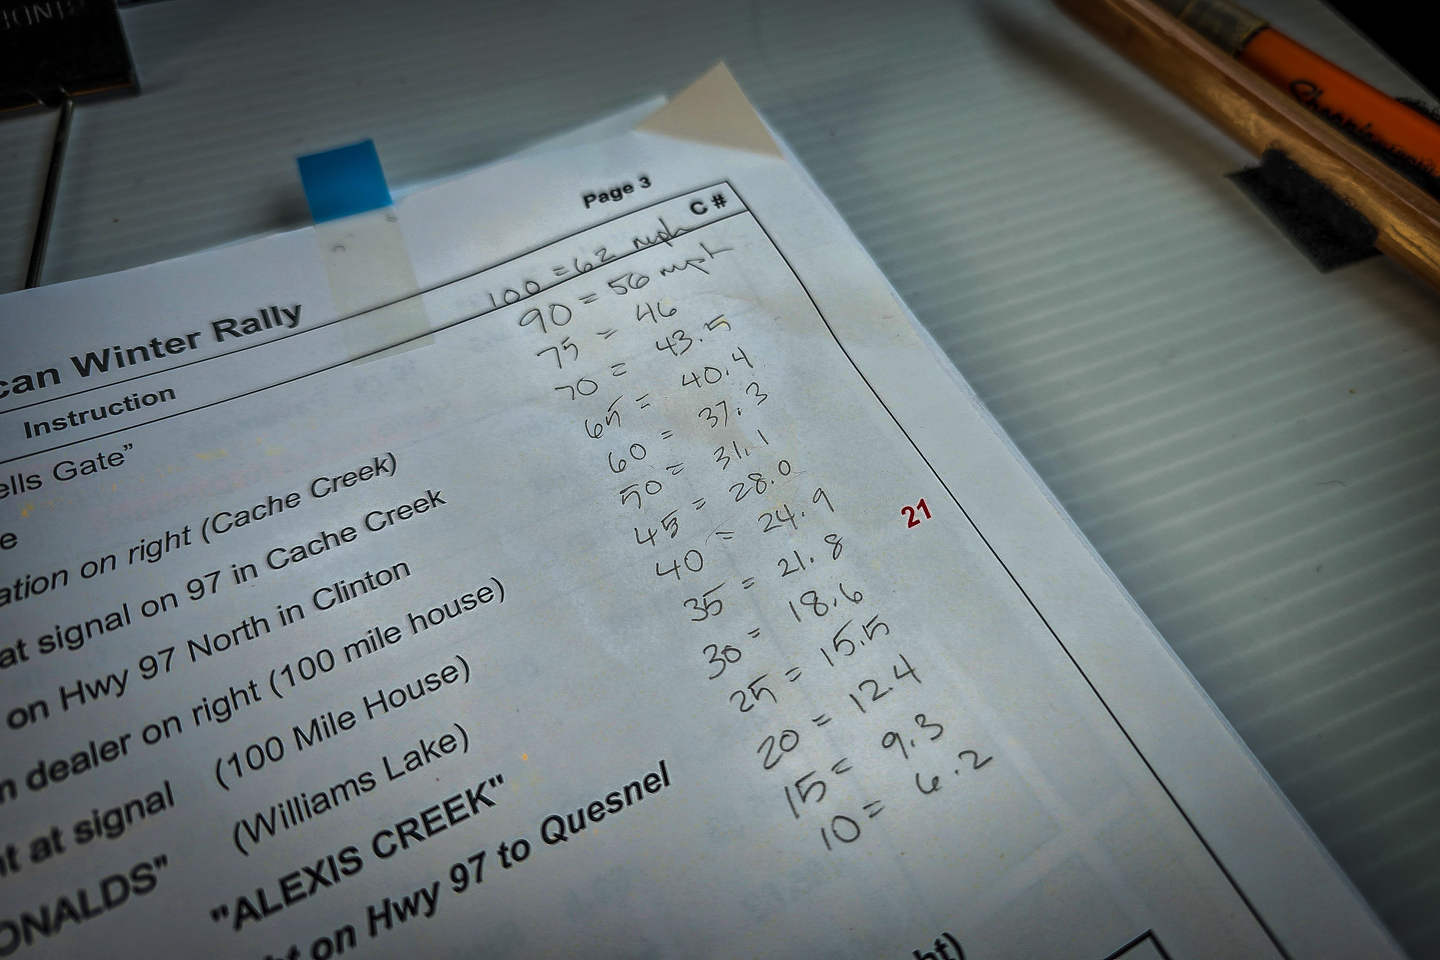 Page 3
C #
can Winter Rally
100 = 62 mph
90 = 56 mph
75 = 46
70 = 43.5
65 = 40.4
60 = 37.3
50 = 31.1
45 = 28.0
40 = 24.9
35 = 21.8
30 = 18.6
25 = 15.5
20 = 12.4
15 = 9.3
10 = 6.2
21
Instruction
ells Gate”
e
ation on right (Cache Creek)
at signal on 97 in Cache Creek
on Hwy 97 North in Clinton
n dealer on right (100 mile house)
at signal (100 Mile House)
ONALDS" (Williams Lake)
"ALEXIS CREEK"
ht on Hwy 97 to Quesnel
ht)